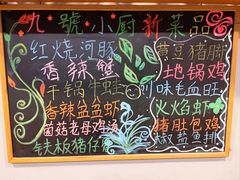 九號小厨新菜品
红烧河豚
香辣蟹
干锅牛蛙
香辣盆盆虾
菌菇老母鸡汤
铁板猪仔
猪脚
地锅鸡
味毛血旺
火焰虾
猪肚包鸡
椒盐鱼排